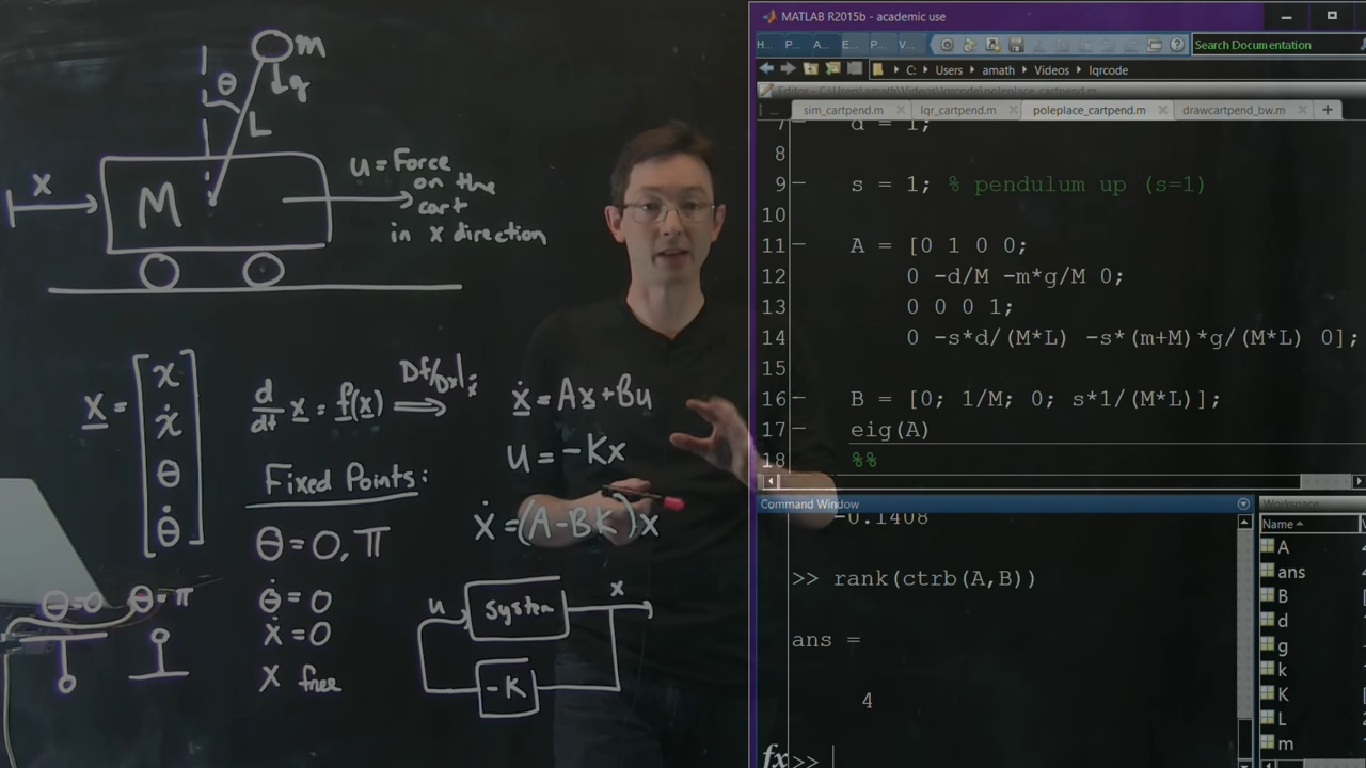 m
θ
g
L
x
M
u = Force
on the
cart
in x direction
x = [x
ẋ
θ
θ̇]
d/dt x = f(x) ⟹
Df/Dx|
ẋ = Ax + Bu
u = -Kx
ẋ = (A-BK)x
Fixed Points:
θ = 0, π
θ̇ = 0
ẋ = 0
x free
θ=0 θ=π
u
system
x
-K
MATLAB R2015b - academic use
H... P... A... E... P... V...
Search Documentation
C: Users amath Videos lqrcode
Editor - C:\Users\amath\Videos\lqrcode\poleplace_cartpend.m
sim_cartpend.m lqr_cartpend.m poleplace_cartpend.m drawcartpend_bw.m +
7 d = 1;
8
9 s = 1; % pendulum up (s=1)
10
11 A = [0 1 0 0;
12 0 -d/M -m*g/M 0;
13 0 0 0 1;
14 0 -s*d/(M*L) -s*(m+M)*g/(M*L) 0];
15
16 B = [0; 1/M; 0; s*1/(M*L)];
17 eig(A)
18 %%
Command Window
-0.1408
>> rank(ctrb(A,B))
ans =
4
fx >>
Workspace
Name
A
ans
B
d
g
k
K
L
m